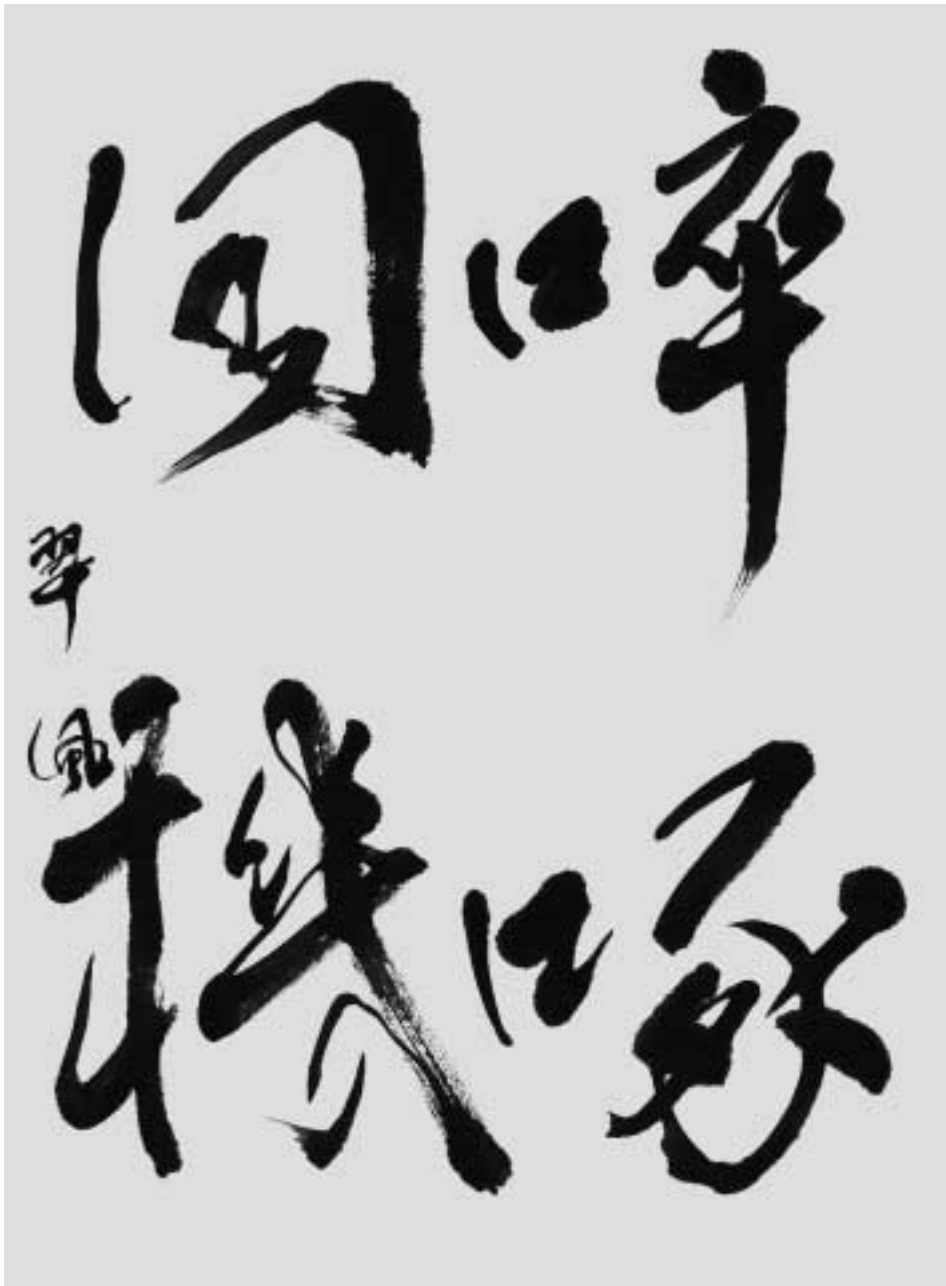 啐啄
同機
翠風